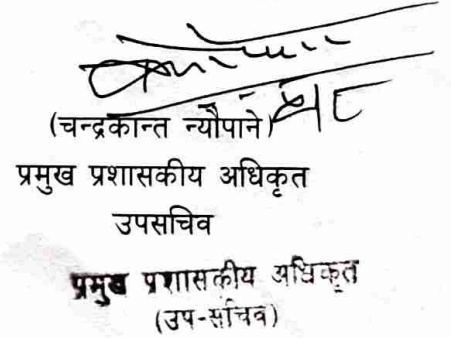 (चन्द्रकान्त न्यौपाने)
प्रमुख प्रशासकीय अधिकृत
उपसचिव
प्रमुख प्रशासकीय अधिकृत
(उप-सचिव)